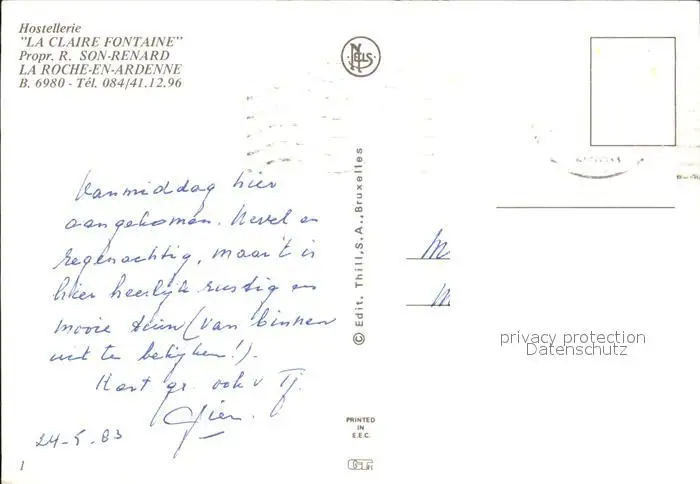 Hostellerie
"LA CLAIRE FONTAINE"
Propr. R. SON-RENARD
LA ROCHE-EN-ARDENNE
B. 6980 - Tél. 084/41.12.96
NELS
Vanmiddag hier
aangekomen. Nevel en
regenachtig, maar 't is
hier heerlijk rustig en
mooie tuin (van binnen
uit te bekijken!).
Hart. gr. ook v Tj.
24-5-83
1
© Edit. Thill, S.A., Bruxelles
PRINTED
IN
E.E.C.
M
M
privacy protection
Datenschutz